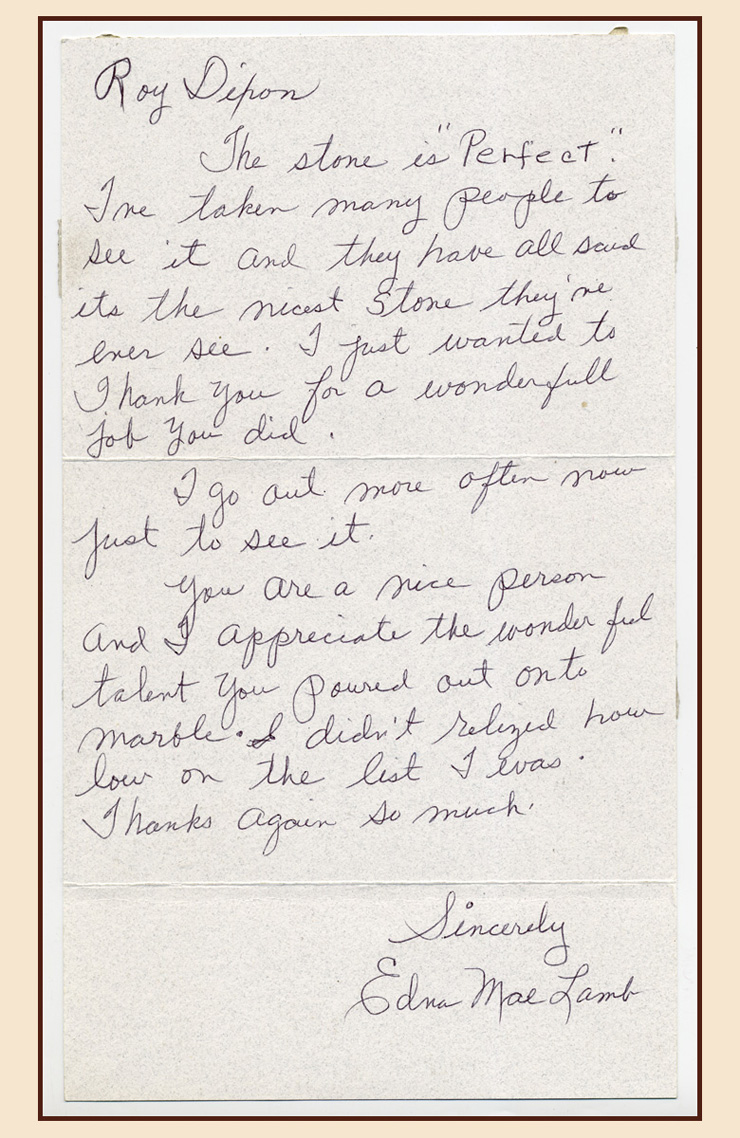 Roy Dixon
The stone is "Perfect".
I've taken many people to
see it and they have all said
its the nicest Stone they've
ever see. I just wanted to
Thank You for a wonderfull
job You did.
I go out more often now
just to see it.
You are a nice person
and I appreciate the wonder ful
talent You poured out onto
marble. I didn't relized how
low on the list I was.
Thanks again so much.
Sincerely
Edna Mae Lamb